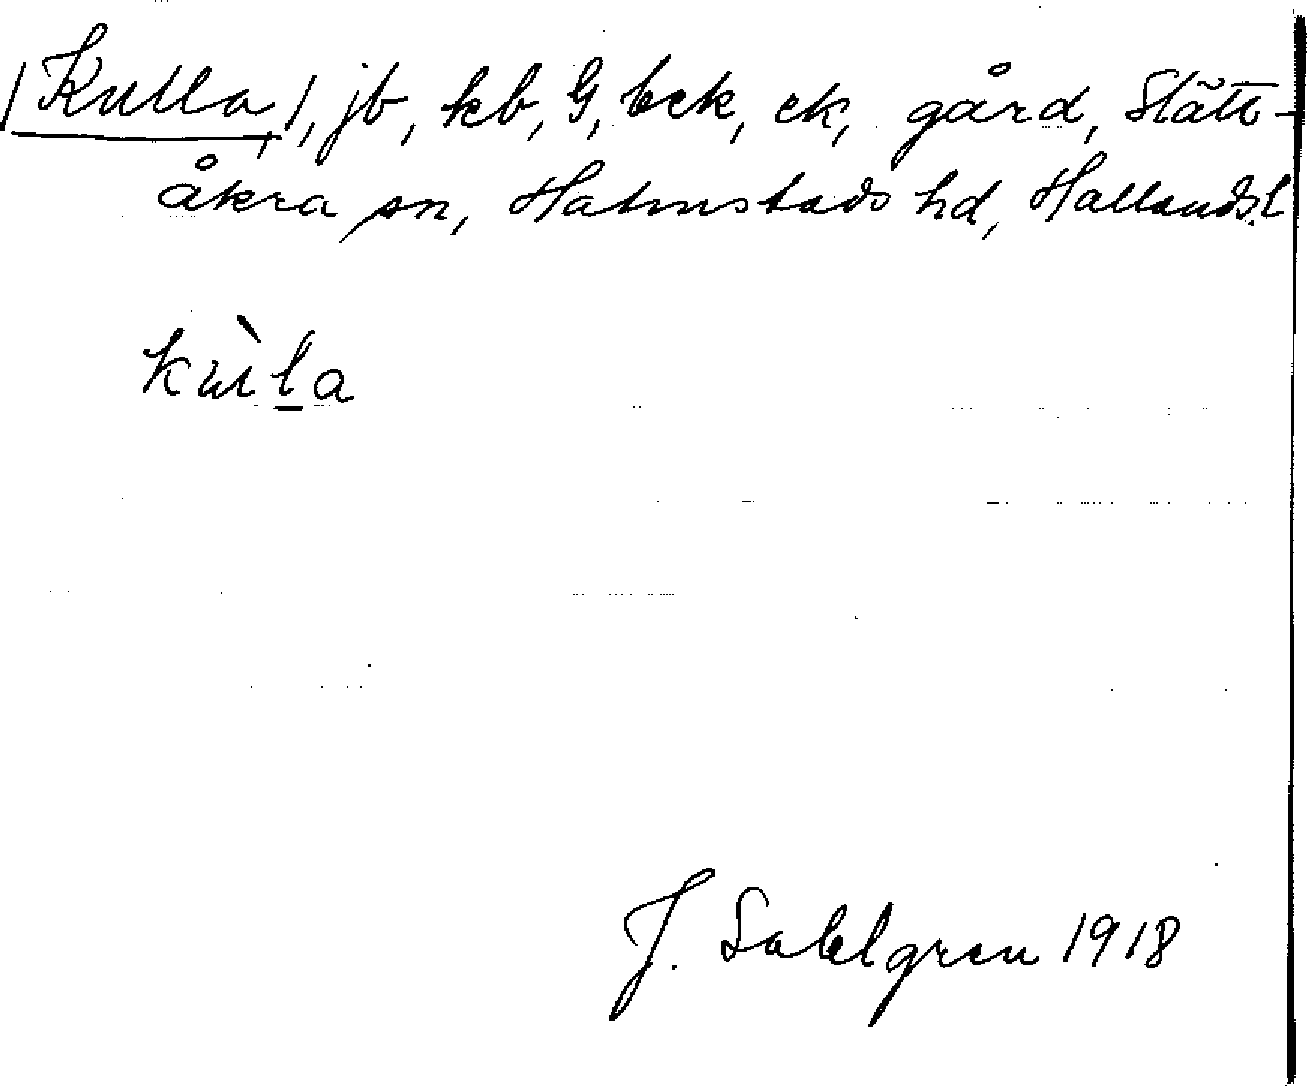 /Kulla,/, jb, kb, G, bck, ck, gård, Slätt-
åkra sn, Halmstads hd, Hallands l.
kùl̠a
J. Sahlgren 1918